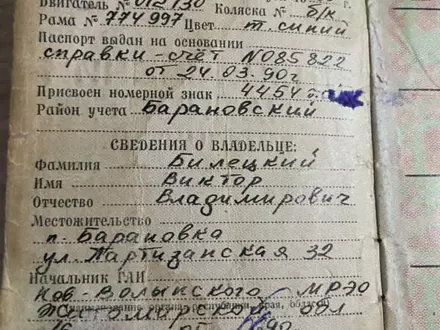 Двигатель № 012130 Коляска № б/к
Рама № 774997 Цвет т. синий
Паспорт выдан на основании
справки-счёт №085822
от 24.03.90г
Присвоен номерной знак 4454
Район учета Барановский
СВЕДЕНИЯ О ВЛАДЕЛЬЦЕ:
Фамилия Билецкий
Имя Виктор
Отчество Владимирович
Местожительство
п. Барановка
ул. Партизанская 32
Начальник ГАИ
Нов-Волынского МРЭО
обл
от 90